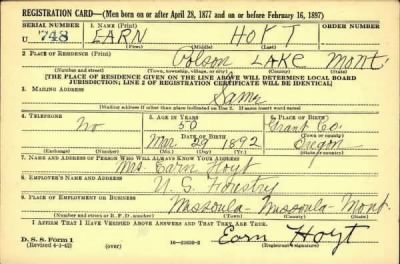 REGISTRATION CARD—(Men born on or after April 28, 1877 and on or before February 16, 1897)
SERIAL NUMBER 1. NAME (Print)
U 748 EARN HOYT
(First) (Middle) (Last)
2. PLACE OF RESIDENCE (Print)
Polson LAKE Mont.
(Number and street) (Town, township, village, or city) (County) (State)
[THE PLACE OF RESIDENCE GIVEN ON THE LINE ABOVE WILL DETERMINE LOCAL BOARD
JURISDICTION; LINE 2 OF REGISTRATION CERTIFICATE WILL BE IDENTICAL]
3. MAILING ADDRESS
Same
[Mailing address if other than place indicated on line 2. If same insert word same]
4. TELEPHONE 5. AGE IN YEARS 6. PLACE OF BIRTH
No 50 Grant Co.
DATE OF BIRTH (Town or county)
Mar. 29 1892 Oregon
(Exchange) (Number) (Mo.) (Day) (Yr.) (State or country)
7. NAME AND ADDRESS OF PERSON WHO WILL ALWAYS KNOW YOUR ADDRESS
Mrs. Earn Hoyt
8. EMPLOYER'S NAME AND ADDRESS
U. S. Forestry
9. PLACE OF EMPLOYMENT OR BUSINESS
Missoula - Missoula - Mont.
(Number and street or R. F. D. number) (Town) (County) (State)
I AFFIRM THAT I HAVE VERIFIED ABOVE ANSWERS AND THAT THEY ARE TRUE.
D. S. S. Form 1 Earn Hoyt
(Revised 4-1-42) (over) (Registrant's signature)